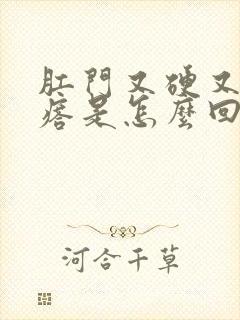 肛門又硬又
痞是怎麼回
河合千草